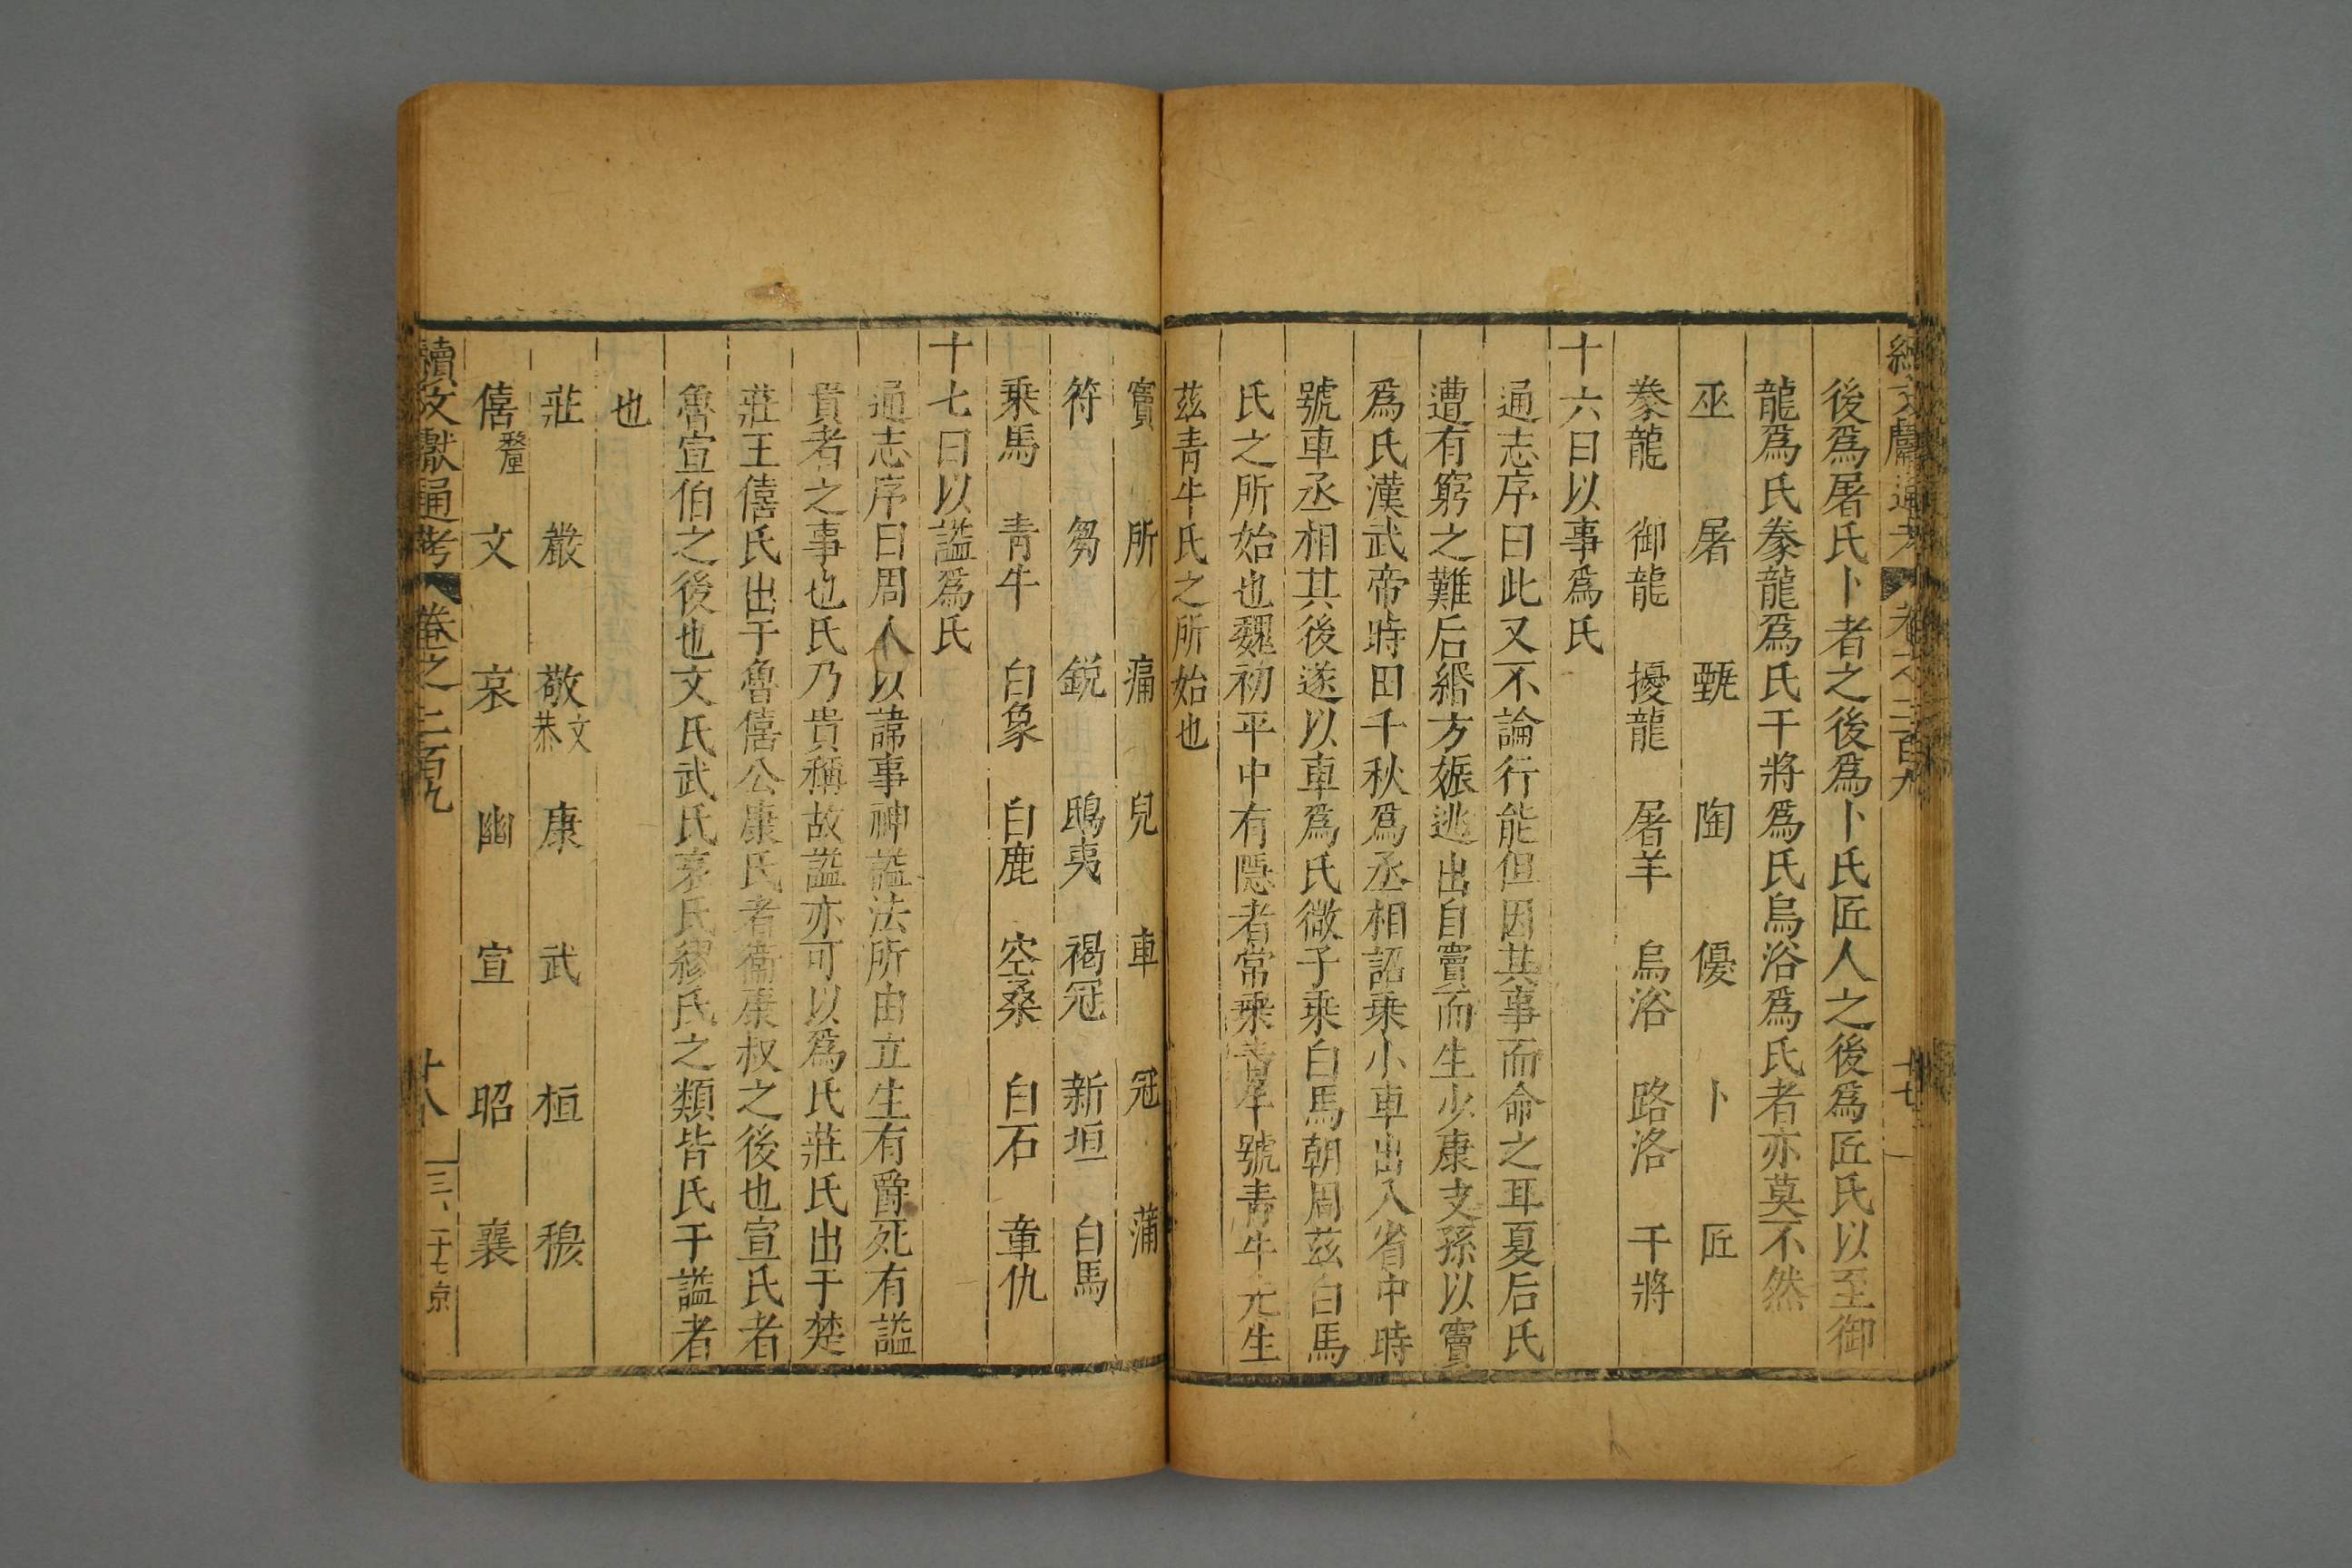 續文獻通考 卷之二百九 十七
後爲屠氏卜者之後爲卜氏匠人之後爲匠氏以至御
龍爲氏豢龍爲氏干將爲氏烏浴爲氏者亦莫不然
巫 屠 甄 陶 優 卜 匠
豢龍 御龍 擾龍 屠羊 烏浴 路洛 干將
十六曰以事爲氏
通志序曰此又不論行能但因其事而命之耳夏后氏
遭有窮之難后緡方娠逃出自竇而生少康支孫以竇
爲氏漢武帝時田千秋爲丞相詔乗小車出入省中時
號車丞相其後遂以車爲氏微子乗白馬朝周茲白馬
氏之所始也魏初平中有隱者常乗青牛號青牛先生
茲青牛氏之所始也
竇 所 痛 兒 車 冠 蒲
符 芻 銳 鴟夷 褐冠 新垣 白馬
乗馬 青牛 白象 白鹿 空桑 白石 章仇
十七曰以謚爲氏
通志序曰周人以諱事神謚法所由立生有爵死有謚
貴者之事也氏乃貴稱故謚亦可以爲氏莊氏出于楚
莊王僖氏出于魯僖公康氏者衞康叔之後也宣氏者
魯宣伯之後也文氏武氏哀氏繆氏之類皆氏于謚者
也
莊 嚴 敬文恭 康 武 桓 穆
僖釐 文 哀 幽 宣 昭 襄
續文獻通考 卷之二百九 十八 三、二十七京